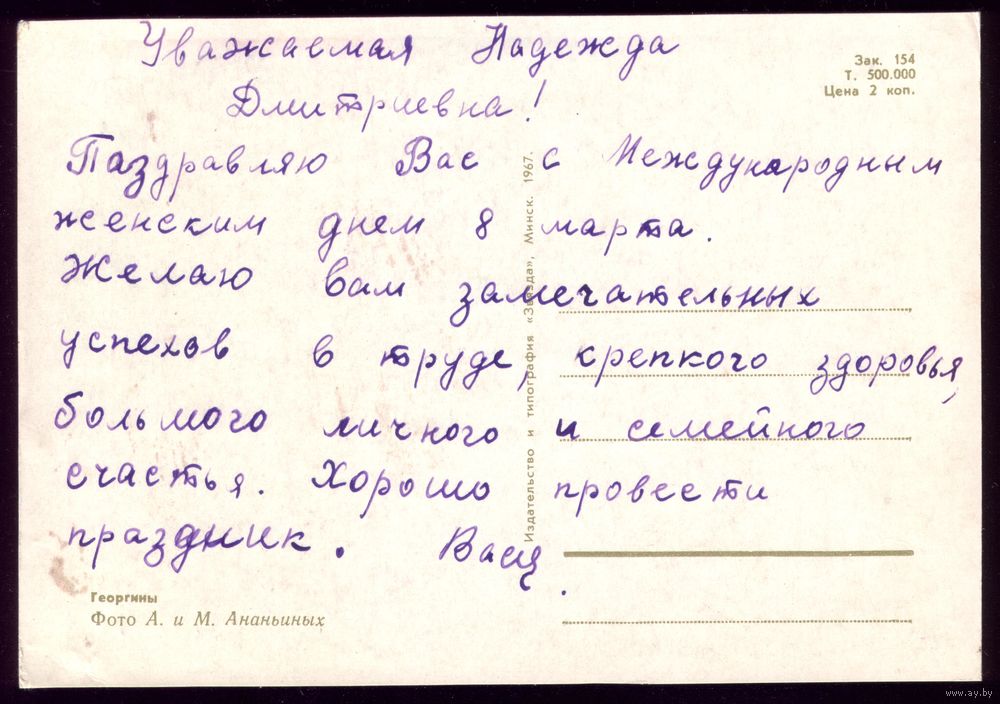 Уважаемая Надежда
Дмитриевна!
Паздравляю Вас с Международным
женским днем 8 марта.
Желаю вам замечательных
успехов в труде, крепкого здоровья,
большого личного и семейного
счастья. Хорошо провести
праздник.
Зак. 154
Т. 500.000
Цена 2 коп.
Издательство и типография «Звязда», Минск. 1967.
Георгины
Фото А. и М. Ананьиных
www.ay.by